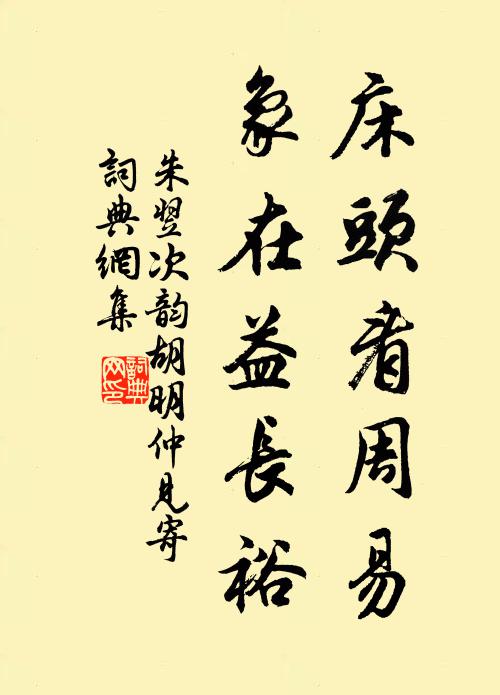 床頭看周易
象在益長裕
朱翌次韵胡明仲見寄
詞典網集
詞典
网印